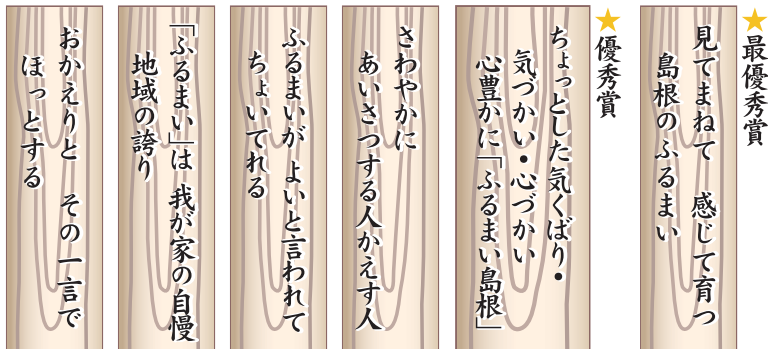 ★最優秀賞
見てまねて　感じて育つ
島根のふるまい
★優秀賞
ちょっとした気くばり・
気づかい・心づかい
心豊かに「ふるまい島根」
さわやかに
あいさつする人かえす人
ふるまいが　よいと言われて
ちょいてれる
「ふるまい」は　我が家の自慢
地域の誇り
おかえりと　その一言で
ほっとする